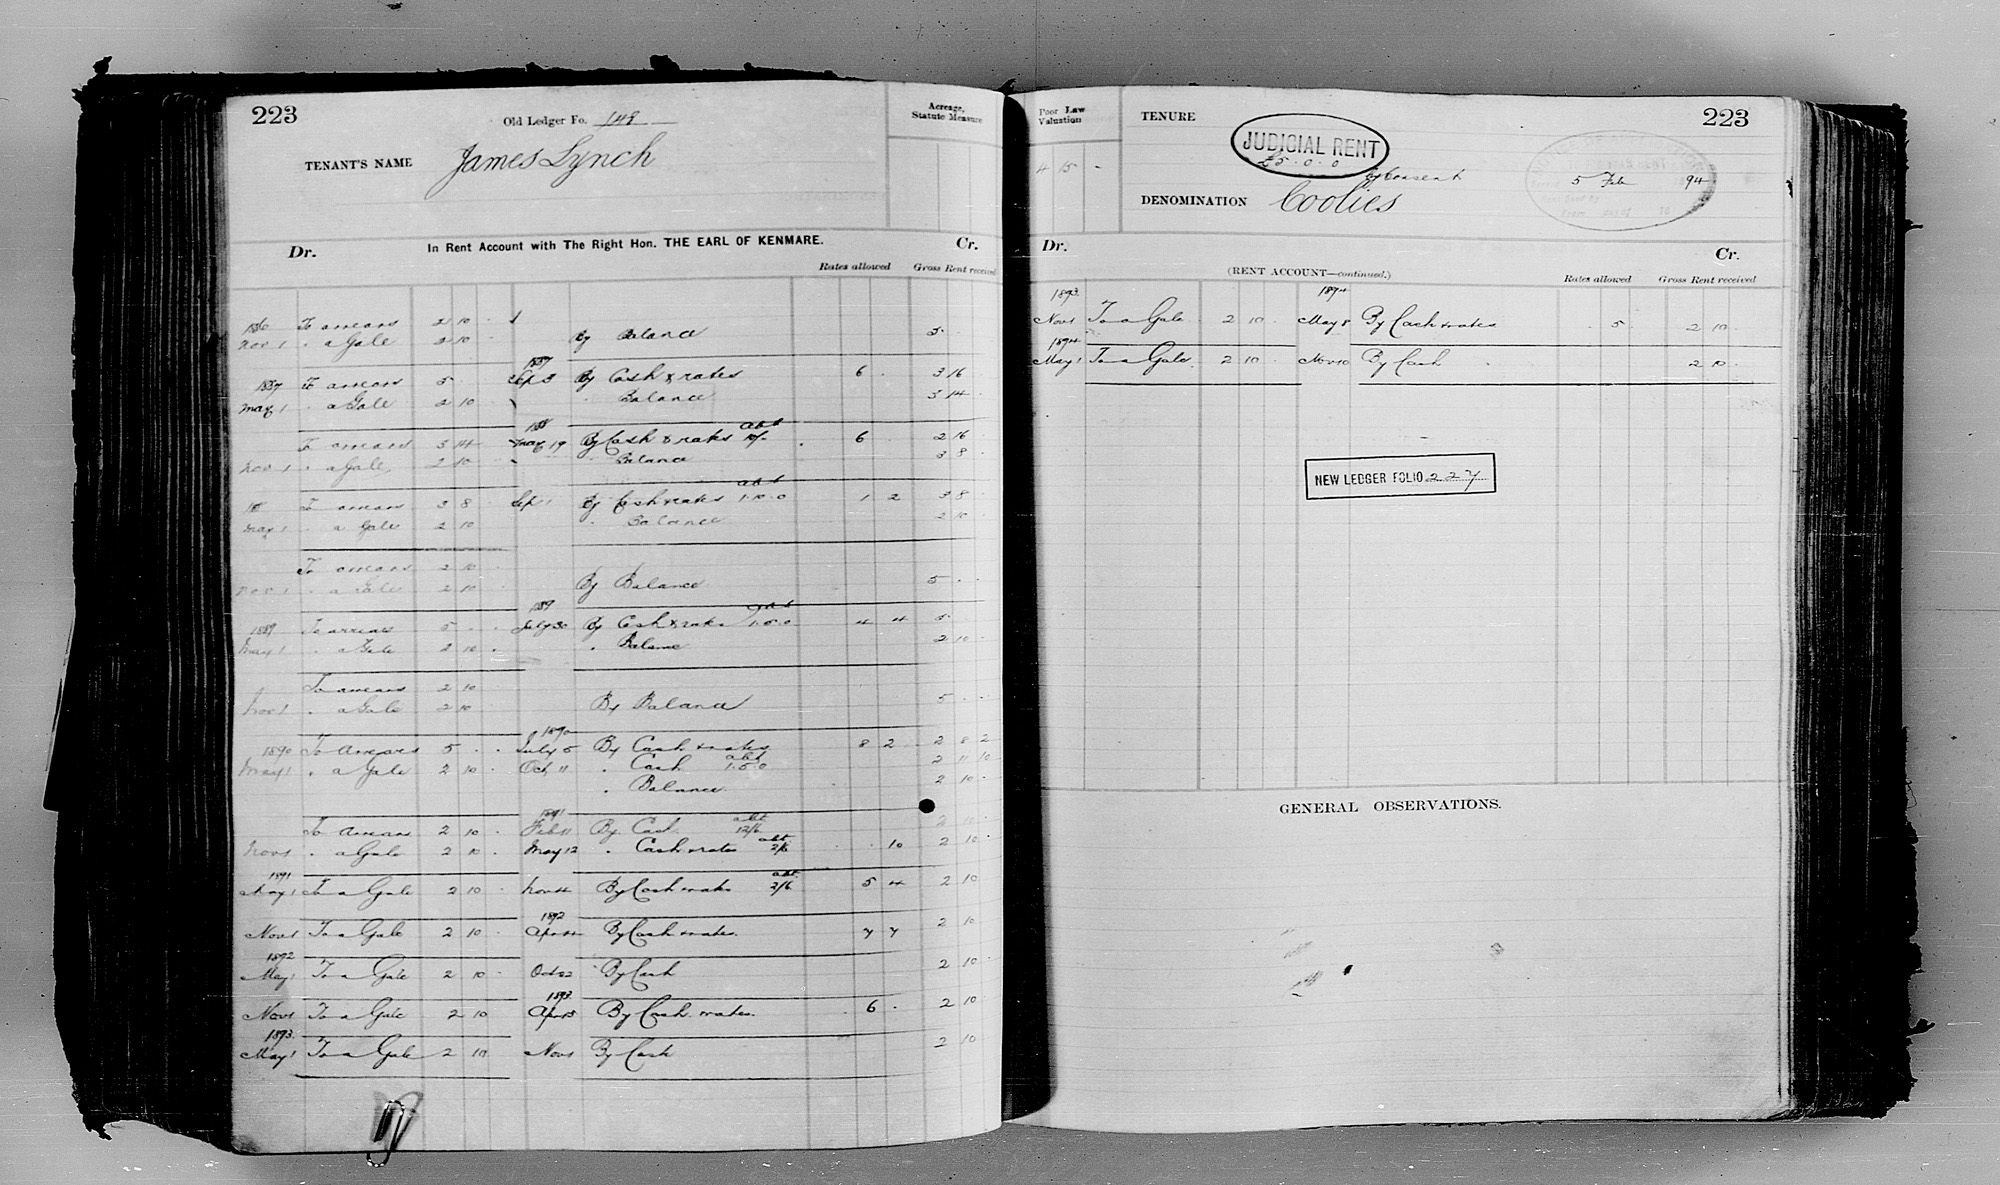 223
Old Ledger Fo. 148
Acreage, Statute Measure
TENANT'S NAME James Lynch
Dr. In Rent Account with The Right Hon. THE EARL OF KENMARE. Cr.
Rates allowed Gross Rent received
1886 To arrears 2 10
Nov 1 " a Gale 2 10 By Balance 5
1887
1887 To arrears 5 Sep 3 By Cash & rates 6 3 16
May 1 " a Gale 2 10 Balance 3 14
188 abt
To arrears 3 14 May 19 By Cash & rates 10/- 6 2 16
Nov 1 " a Gale 2 10 Balance 3 8
abt
To arrears 3 8 Sep 1 By Cash & rates 1.10.0 1 2 3 8
May 1 " a Gale 2 10 " Balance 2 10
To arrears 2 10
Nov 1 " a Gale 2 10 By Balance 5
1889 abt
1889 To arrears 5 July 30 By Cash & rates 1.5.0 4 4 5
May 1 " a Gale 2 10 " Balance 2 10
To arrears 2 10
Nov 1 " a Gale 2 10 By Balance 5
1890
1890 To Arrears 5 July 5 By Cash & rates 8 2 2 8 2
May 1 " a Gale 2 10 Oct 11 " Cash abt 1.5.0 2 11 10
" Balance 2 10
1891
To Arrears 2 10 Feb 11 By Cash abt 12/6 2 10
Nov 1 " a Gale 2 10 May 12 " Cash & rates abt 2/6 10 2 10
1891
May 1 To a Gale 2 10 Nov 4 By Cash & rates abt 2/6 5 4 2 10
1892
Nov 1 To a Gale 2 10 Apr By Cash & rates. 7 7 2 10
1892
May 1 To a Gale 2 10 Oct 22 By Cash 2 10
1893
Nov 1 To a Gale 2 10 Apr 15 By Cash & rates. 6 2 10
1893
May 1 To a Gale 2 10 Nov 1 By Cash 2 10
Poor Law Valuation
4 15 -
TENURE
JUDICIAL RENT
£5.0.0
By Consent
5 Feb 94
223
DENOMINATION Coolies
Dr. Cr.
(RENT ACCOUNT—continued.)
Rates allowed Gross Rent received
1893 1894
Nov 1 To a Gale 2 10 May 8 By Cash & rates 5 2 10
1894
May 1 To a Gale 2 10 Nov 10 By Cash 2 10
NEW LEDGER FOLIO 227
GENERAL OBSERVATIONS.